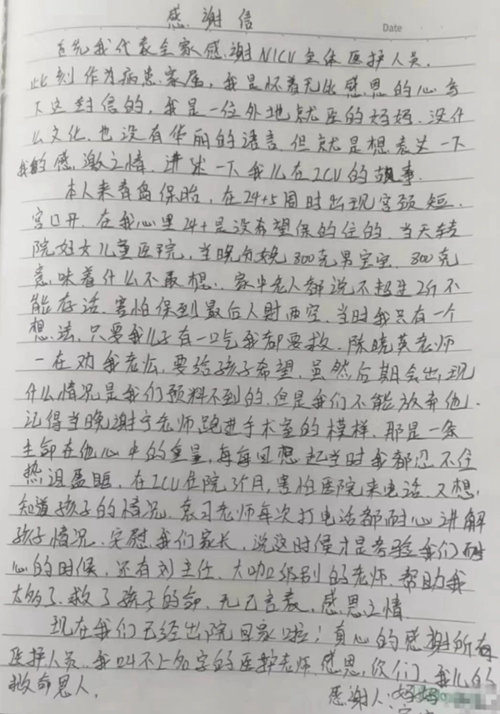 感谢信
Date
首先我代表全家感谢NICU全体医护人员.
此刻作为病患家属,我是怀着无比感恩的心写
下这封信的,我是一位外地就医的妈妈.没什
么文化.也没有华丽的语言.但就是想表达一下
我的感激之情.讲述一下我儿在ICU的故事.
本人来青岛保胎,在24+5周时出现宫颈短.
宫口开.在我心里24+是没希望保的住的.当天转
院妇女儿童医院,当晚分娩800克男宝宝.800克
意味着什么不敢想.家中老人都说不超过2斤不
能存活.害怕保到最后人财两空.当时我只有一个
想法,只要我儿子有一口气我都要救.陈晓英老师
一在劝我老公,要给孩子希望.虽然后期会出现
什么情况是我们预料不到的.但是我们不能放弃他.
记得当晚谢宁老师跑进手术室的模样.那是一条
生命在他心中的重量,每每回想起当时我都忍不住
热泪盈眶.在ICU住院3个月,害怕医院来电话.又想
知道孩子的情况.袁习老师每次打电话都耐心讲解
孩子情况.安慰我们家长,说这时候才是考验我们耐
心的时候.还有刘主任.大咖级别的老师.帮助我
太多了.救了孩子的命.无以言表,感恩之情.
现在我们已经出院回家啦!真心的感谢所有
医护人员.我叫不上名字的医护老师.感恩你们.我儿的
救命恩人.
感谢人:妈妈